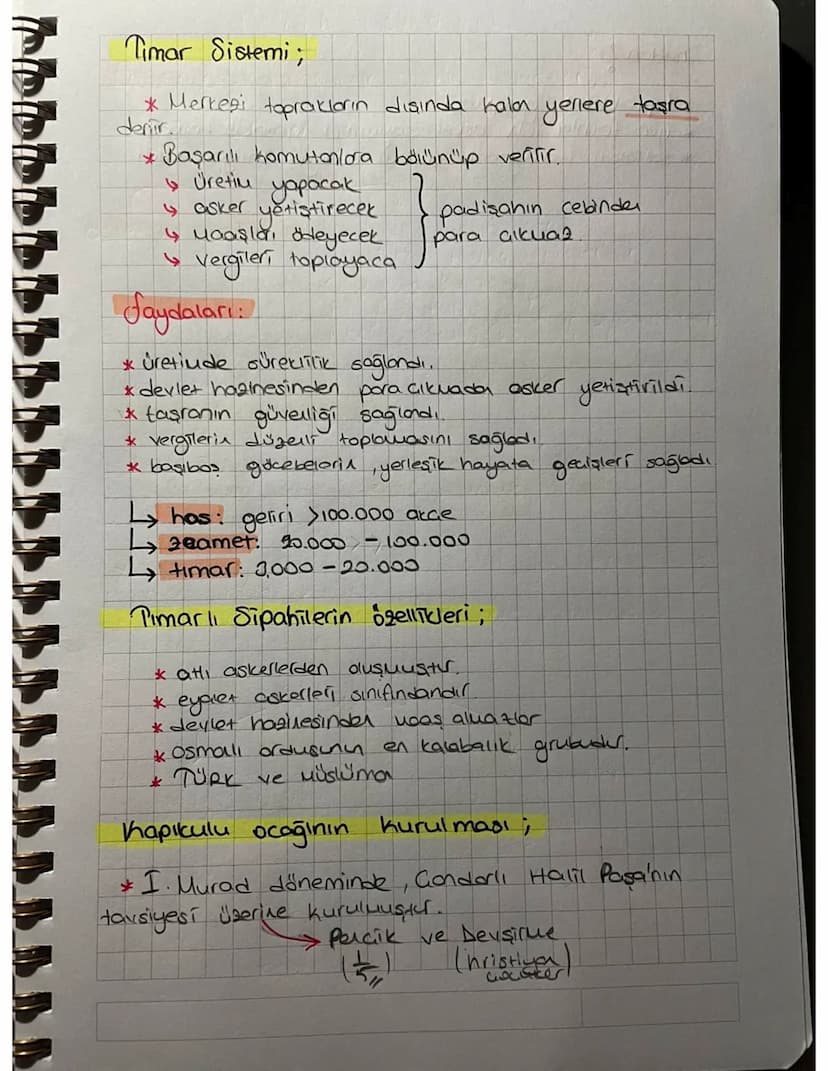 Tımar Sistemi;
* Merkezi toprakların dışında kalan yerlere taşra
denir.
* Başarılı komutanlara bölünüp verilir.
↳ üretim yapacak
↳ asker yetiştirecek
↳ maaşları ödeyecek
↳ vergileri toplayaca
padişahın cebinden
para çıkmaz
faydaları:
* üretimde süreklilik sağlandı.
* devlet hazinesinden para çıkmadan asker yetiştirildi.
* taşranın güvenliği sağlandı.
* vergilerin düzenli toplamasını sağladı.
* başıboş göcebelerin, yerleşik hayata geçişleri sağladı.
↳ has: geliri >100.000 akçe
↳ zeamet: 20.000 - 100.000
↳ tımar: 3,000 - 20.000
Tımarlı Sipahilerin özellikleri;
* atlı askerlerden oluşmuştur.
* eyalet askerleri sınıfındandır.
* devlet hazinesinden maaş almazlar
* osmalı ordusunun en kalabalık grubudur.
* TÜRK ve müslüman
Kapıkulu ocağının kurulması;
* I. Murad döneminde, Candarlı Halil Paşa'nın
tavsiyesi üzerine kurulmuştur.
→ Pencik ve Devşirme
(1/5) (hristiyan
çocuklar)